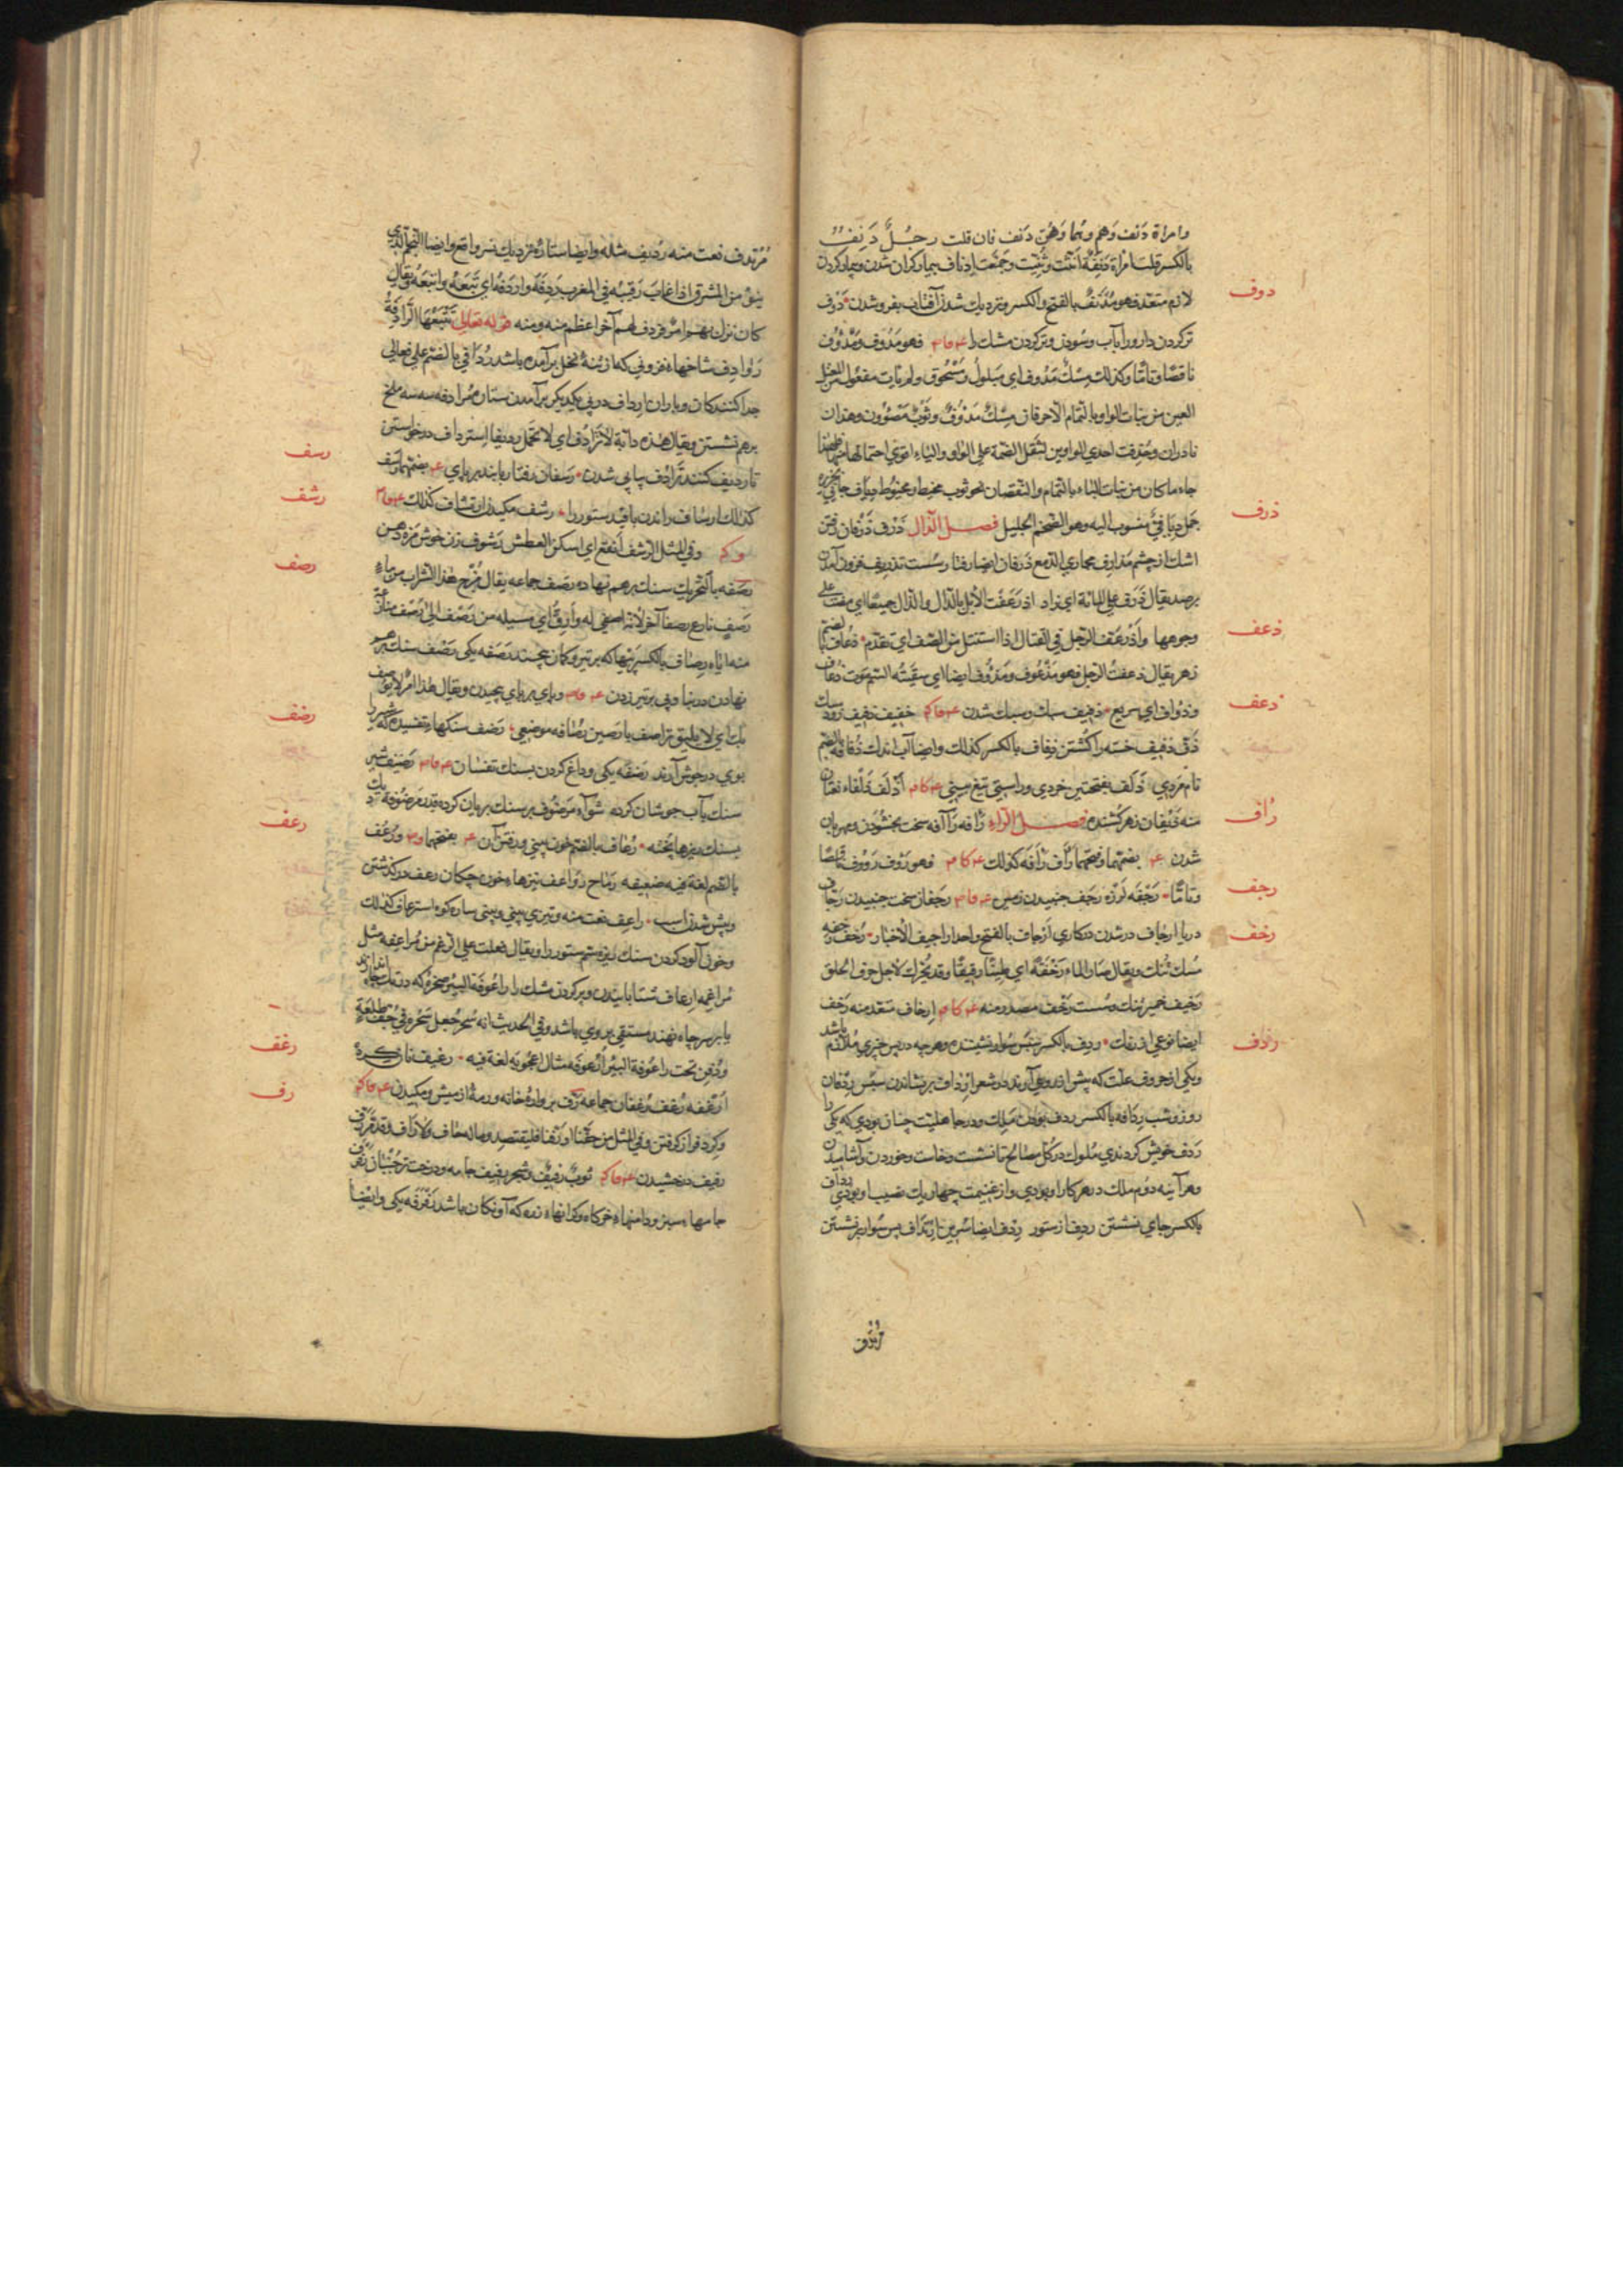 وامراة دَنَف وَهم وهما وَهُنّ دَنَف فان قلت رجُلٌ دَنِفٌ
بالكسر قلت امراة دَنِفَةٌ انّثت وثنّيت وجَمَعت اِدناف بيمار كران شدن وبيمار كردن
دوف
لازم متعد فهو مُدْنَفٌ بالفتح والكسر ونزديك شدن آفتاب بفروشدن دَوْف
تر كردن دارو را بآب وسودن وتر كردن مشك را فهو مَدُوف ومَدْوُوف
ناقصًا وتامًّا وكذلك مِسْكٌ مَدُوف اي مَبلولٌ ومَسْحُوق ولم يات مفعول من المعتل
العين من بنات الواو بالتمام الا حرفان مِسْكٌ مَدْوُوفٌ وثَوْبٌ مَصْوُونٌ وهذان
نادران وحُذِفت احدي الواوين لثقل الضمة علي الواو والياء اقوي احتمالها منها
جاء ما كان من بنات الياء بالتمام والنقصان نحو ثوب مخيط ومخيوط
ذرف
جمل دِيَافِيّ منسوب اليه وهو الضخم الجليل فصل الذّال ذَرْف ذَرَفان رفتن
اشك از چشم مَذارِف مجاري الدمع ذَرَفان ايضا رفتار سست تذريف فزون آمدن
برصد يقال ذَرَّف علي المائة اي زاد اذرعَفّت الابل بالذال والدال جميعًا اي مضت علي
ذعف
وجوهها واذْرَعَفّ الرّجل في القتال اذا استنتل من الصف اي تقدم ذُعاف بالضم
زهر يقال ذعفتُ الرجل فهو مَذْعُوف ايضا اي سقيته السّم موت ذُعاف
ذعف
وذُوَاف اي سريع ذفيف سبك وسبك شدن خفيف ذفيف زود
ذَفّ ذفيف خسته را كُشتن ذِفاف بالكسر كذلك وايضا آب اندك ذُفافه بالضم
نام مَردي ذَلَف بفتحتين خردي وراستي تيغ بيني اَذْلَف ذَلْفاء نعتان
رأف
منه ذَيْفان زهر كُشنده فصل الرّاء رَأفه رَآفه سخت بخشودن ومهربان
شدن بضمّها وفتحهما رَأَف رَأفَة كذلك فهو رَؤُف رَؤوف ناقصًا
رجف
وتامًّا رَجْفَه لرزه رَجَف جنبيدن زمين رَجَفان سخت جنبيدن رَجّاف
رخف
دريا اِرجاف در شدن در كاري اَرجاف بالفتح واحد اراجيف الاخبار رَخْف رَخْفَه
مسكه تُنُك ويقال صار الماء رَخْفَةً اي طينًا رقيقًا وقد يُحرّك لاجل حرف الحلق
رَخيف خمير تُنُك وسست رَخَف مصدر منه اِرخاف متعد منه رَخْف
ردف
ايضا نوعي از رنگ رِدف بالكسر سپس سوار نشيننده وهرچه در پس چيزي ملازم باشد
ويكي از حروف علّت كه پيش از روي آرند در شعر اِرداف برنشاندن سپس رِدْفان
روز وشب رِدَافه بالكسر ردف بودن مَلِك ودر جاهليت چنان بودي كه يكي را
رِدف خويش كردندي ملوك در كل مصالح تا نشست وخاست وخوردن وآشاميدن
وهر آينه دوم ملك در هر كار او بودي واز غنيمت چهار يك نصيب او بودي رِداف
بالكسر جاي نشستن رديف از ستور رِدف ايضا سُرين اِرْتداف پس سوار برنشستن
مُرْتدف
مُرْتدف نعت منه رَديف مثله وايضا ستاره نزديك نسر واقع وايضا النّجم الذي
ينوء من المشرق اذا غاب رَقيبُه في المغرب رَدِفَهُ واردَفَهُ اي تَبعَهُ واتبَعَهُ ويقال
كان نزل بهم امرٌ فردف لهم آخر اعظم منه ومنه قوله تعالي تَتْبَعُهَا الرَّادِفَةُ
رَوَادِف شاخهاء فزوني كه از تنهٔ نخل برآمده باشد رُدَافي بالضم علي فُعالي
حدا كنندكان وياران تَرادُف در پي يكديكر برآمدن ستاره مُرادفه سه سه ملخ
رسف
برهم نشستن ويقال هذه دابّة لا تُرَادِف اي لا تحمل رديفا اِستِرداف درخواستن
تا رديف كنند تَرَادُف پياپي شدن رَسَفان رفتار بابند بر پاي بضمهما رَسْف
رشف
كذلك اِرساف راندن با قيد ستور را رشف مكيدن اِرتشاف كذلك
وفي المثل الرّشف اَنقع اي اسكن للعطش رَشُوف زن خوش مزه دهن
رصف
رَصَفه بالتحريك سنك برهم نهاده رَصَف جماعه يقال مُزِج هذا الشراب من ماء
رَصَفٍ نازع رصفًا آخر لانّه اصفي له وارقّ اي مسيله من رَصَف الي رَصَف
منه ايّاه رِصاف بالكسر پيها كه بر تير وكمان پيچند رَصَفه يكي رَصْف سنك برهم
نهادن در بنا وپي بر تير زدن وپاي بر پاي پيچيدن ويقال هذا امرٌ لا يرصف
رضف
بك اي لا يليق تراصف بارَصين رُصافه موضعي رَضف سنكهاء تفسيده كه شير را
بوي در جوش آرند رَضفَه يكي وداغ كردن بسنك تفسان رَضيف شير
رعف
سنك بآب جوشان كرده شوآء مَرضُوف بر سنك بريان كرده قِدر مَرضُوفه ديك
بسنك ريزها پخته رُعاف بالضم خون بيني ورفتن آن بضمهما ورَعُف
بالضم لغة فيه ضعيفه رِماح رَوَاعف نيزهاء خون چكان رعف دركذشتن
وپيش شدن اسب راعِف نعت منه وتيزي بيني وبيني ساره كوه استرعاف كذلك
وخون آلود كردن سنك ريزه سم ستور را ويقال فعلت علي الرّغم من مُراعِفه مثل
مُراغمه اِرعاف شتابانيدن وپر كردن مشك را رَاعُوفة البئر صخره كه در تك چاه
يا بر سر چاه نهند مستقي بر وي باشد وفي الحديث انه سُحِر جُعِل سَحَره في جُفِّ طلعَةٍ
رغف
ودُفِن تحت راعُوفة البئر اُرعوفه مثال اُعجُوبه لغة فيه رغيف نان كرده
رف
اَرغفه رُغف رُغفان جماعه رَفّ بروارهٔ خانه ورمهٔ از ميش ومكيدن
وكرد فراز كرفتن وفي المثل من حَفّنا او رَفّنا فليقتصد وما له حافّ ولا رافّ وقد رَفّ
رفيف درخشيدن ثوبٌ رفيفٌ وشجر رفيف جامه ودرخت تر جُنبان رَفرَف
جامهاء سبز ودامنهاء خركاه وكرانهاء زره كه آونكان باشد رَفْرَفَه يكي وايضًا